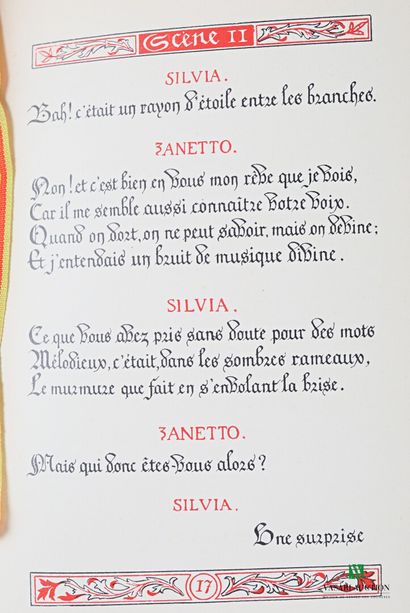 Scène II
SILVIA.
Bah! c'était un rayon d'étoile entre les branches.
ZANETTO.
Non! et c'est bien en vous mon rêve que je vois,
Car il me semble aussi connaître votre voix.
Quand on dort, on ne peut savoir, mais on devine;
Et j'entendais un bruit de musique divine.
SILVIA.
Ce que vous avez pris sans doute pour des mots
Mélodieux, c'était, dans les sombres rameaux,
Le murmure que fait en s'envolant la brise.
ZANETTO.
Mais qui donc êtes-vous alors?
SILVIA.
Une surprise
17
VASARI AUCTION